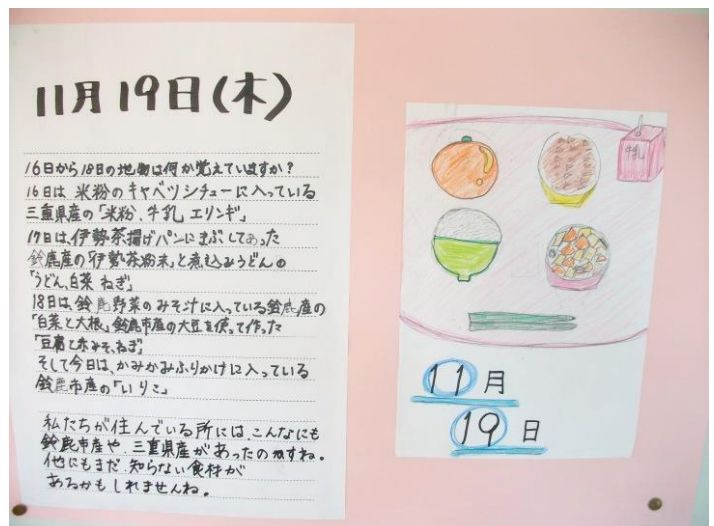 11月19日(木)
16日から18日の地物は何か覚えていますか?
16日は、米粉のキャベツシチューに入っている
三重県産の「米粉、牛乳、エリンギ」
17日は、伊勢茶揚げパンにまぶしてあった
鈴鹿産の「伊勢茶粉末」と煮込みうどんの
「うどん、白菜、ねぎ」
18日は、鈴鹿野菜のみそ汁に入っている鈴鹿産の
「白菜と大根」鈴鹿市産の大豆を使って作った
「豆腐と赤みそ、ねぎ」
そして今日は、かみかみふりかけに入っている
鈴鹿市産の「いりこ」
私たちが住んでいる所には、こんなにも
鈴鹿市産や、三重県産があったのですね。
他にもまだ、知らない食材が
あるかもしれませんね。
牛乳
11月
19日